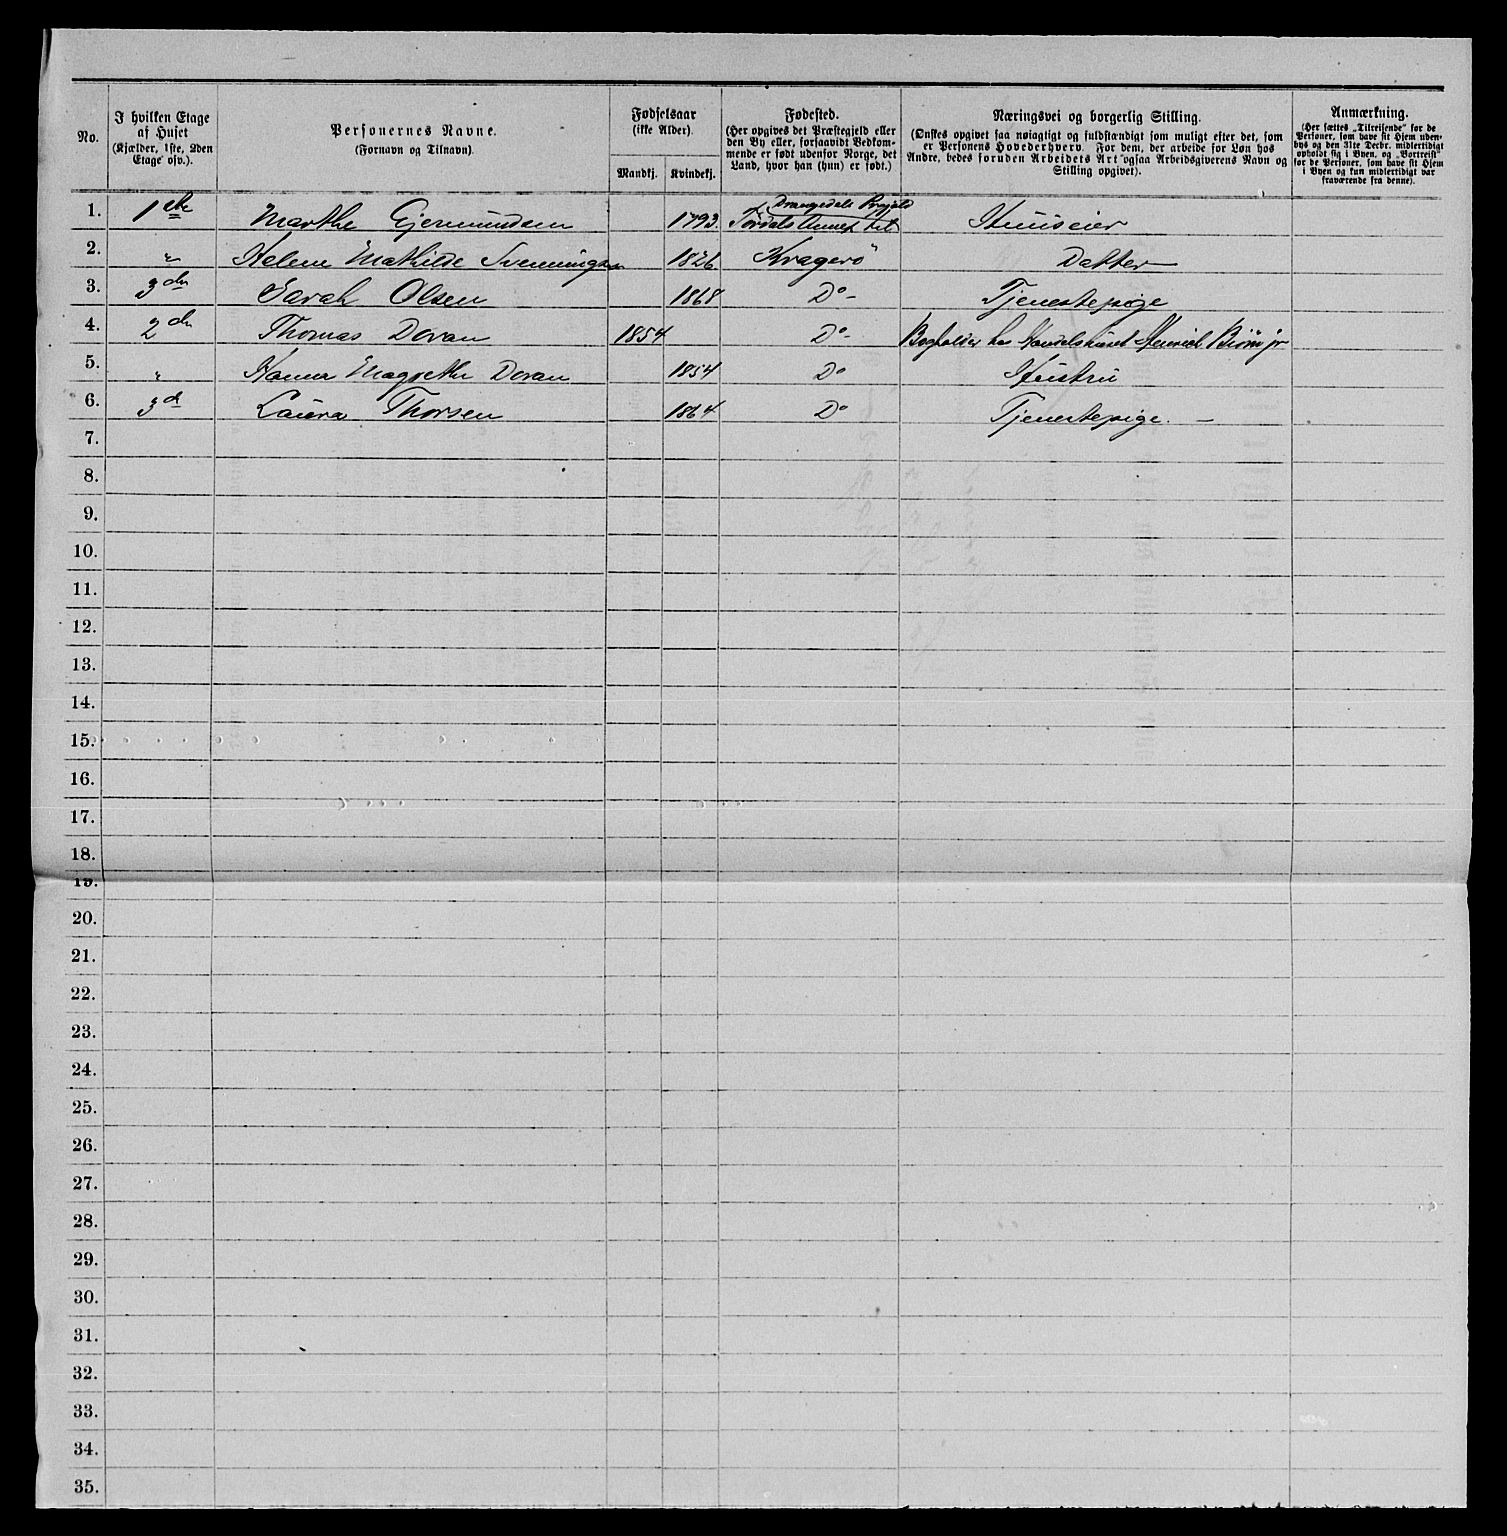 No.
I hvilken Etage
af Huset
(Kjælder, 1ste, 2den
Etage osv.).
Personernes Navne.
(Fornavn og Tilnavn).
Fødselsaar
(ikke Alder).
Mandkj. Kvindekj.
Fødested.
(Her opgives det Præstegjeld eller
den By eller, forsaavidt Vedkom-
mende er født udenfor Norge, det
Land, hvor han (hun) er født.)
Næringsvei og borgerlig Stilling.
(Ønskes opgivet saa nøiagtigt og fuldstændigt som muligt efter det, som
er Personens Hovederhverv. For dem, der arbeide for Løn hos
Andre, bedes foruden Arbeidets Art ogsaa Arbeidsgiverens Navn og
Stilling opgivet).
Anmærkning.
(Her sættes „Tilreisende" for de
Personer, som have sit Hjem uden-
bys og den 31te Decbr. midlertidigt
opholdt sig i Byen, og „Bortreist"
for de Personer, som have sit Hjem
i Byen og kun midlertidigt var
fraværende fra denne).
Drangedals Prgjæld
1. 1ste Marthe Gjermundsen 1793. Tørdals Annex til Huuseier
2. " Helene Mathilde Svenningsen 1826 Kragerö Datter
3. 3die Sarah Olsen 1868 Do - Tjenestepige
4. 2den Thomas Doran 1854 Do - Bogholder hos Handelshuset Henrich Biörn jr
5. " Hanna Magrethe Doran 1854 Do Hustru
6. 3d Laura Thorsen 1864 Do Tjenestepige. -
7.
8.
9.
10.
11.
12.
13.
14.
15.
16.
17.
18.
19.
20.
21.
22.
23.
24.
25.
26.
27.
28.
29.
30.
31.
32.
33.
34.
35.